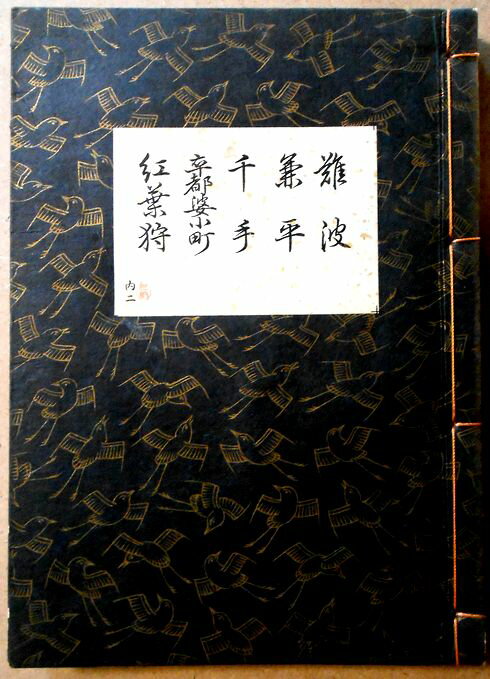 難波
兼平
千手
卒都婆小町
紅葉狩
内二